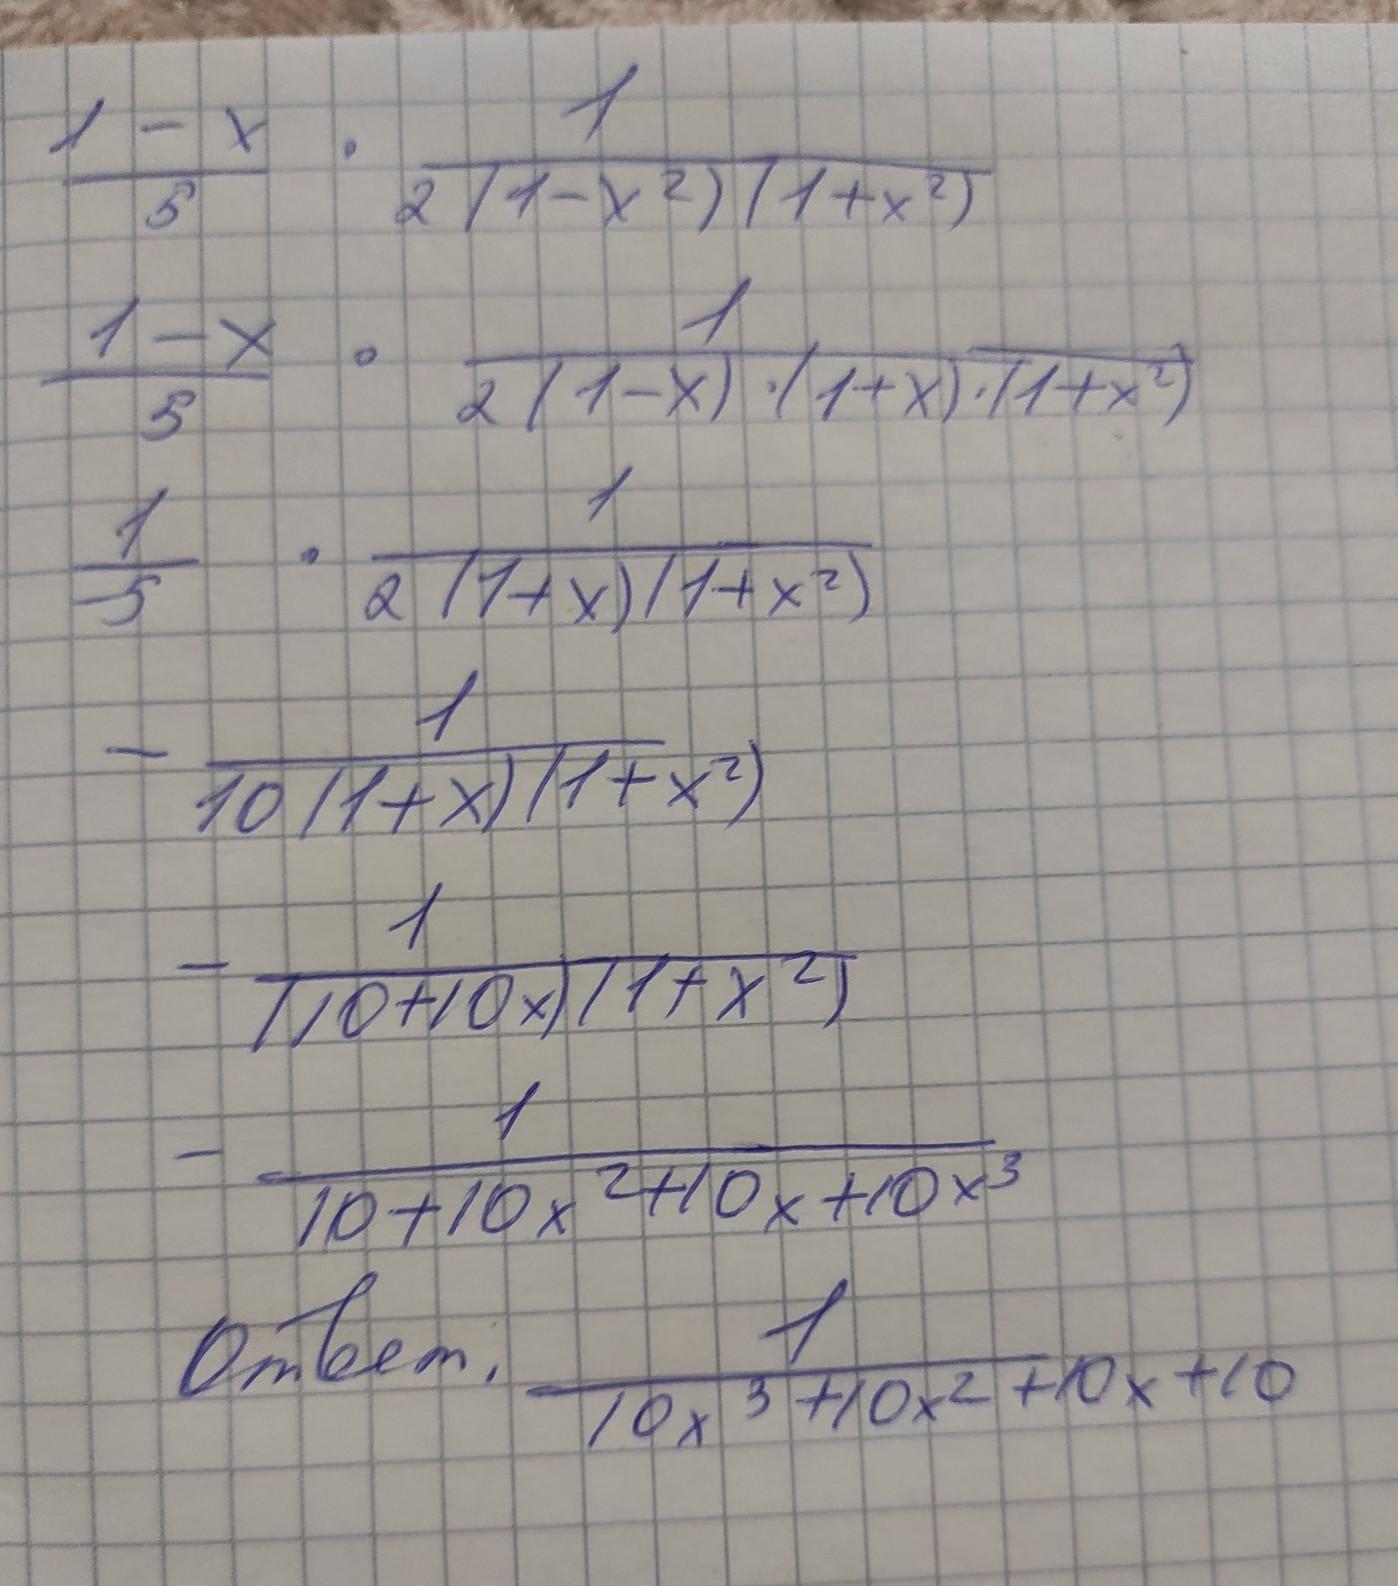 1 - x / 5 · 1 / 2(1-x²)(1+x²)
1 - x / 5 · 1 / 2(1-x)·(1+x)·(1+x²)
1 / -5 · 1 / 2(1+x)(1+x²)
- 1 / 10(1+x)(1+x²)
- 1 / (10+10x)(1+x²)
- 1 / 10+10x²+10x+10x³
Ответ. 1 / 10x³+10x²+10x+10